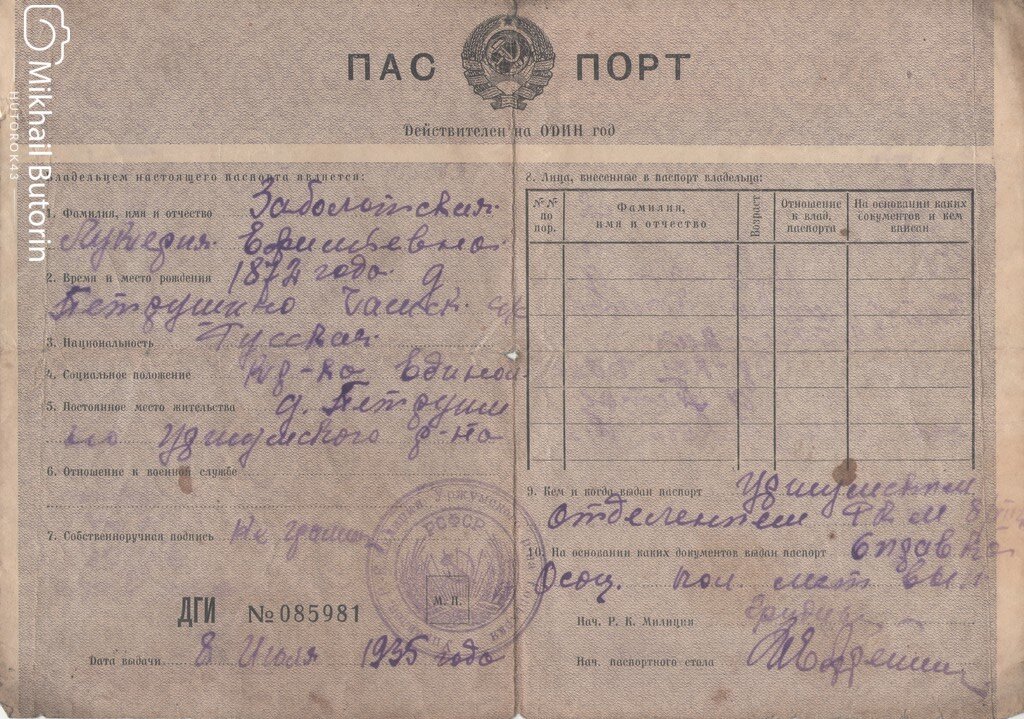 ПАСПОРТ
Действителен на ОДИН год
Владельцем настоящего паспорта является:
1. Фамилия, имя и отчество Заболотская
Лукерия Ефимьевна
2. Время и место рождения 1872 года д
Петрушино
3. Национальность Русская
4. Социальное положение кр-ка един
5. Постоянное место жительства д. Петруши
но Уржумского р-на
6. Отношение к военной службе
7. Собственноручная подпись
ДГИ №085981
М. П.
РСФСР
Дата выдачи 8 Июля 1935 года
8. Лица, внесенные в паспорт владельца:
№№ по пор.
Фамилия, имя и отчество
Возраст
Отношение к влад. паспорта
На основании каких документов и кем вписан
9. Кем и когда выдан паспорт Уржумским
отделением РКМ 8
10. На основании каких документов выдан паспорт Справка
Нач. Р. К. Милиции
Нач. паспортного стола
Mikhail Butorin
HUTOROK43